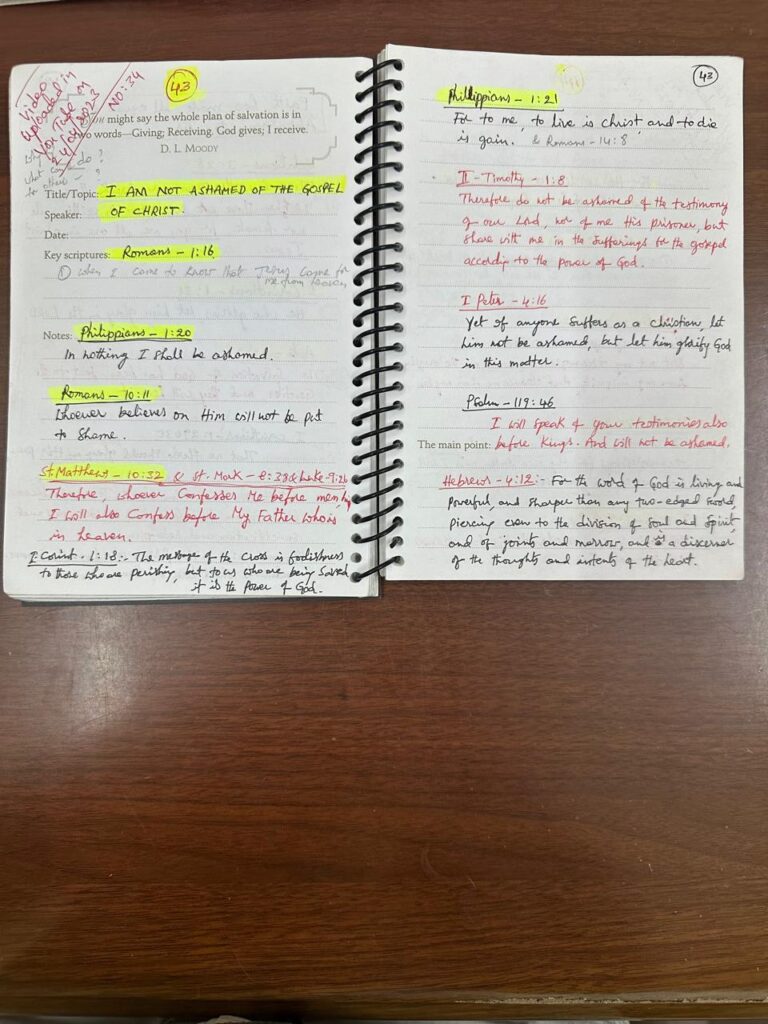 Video
uploaded in
You Tube on
24/04/2023
NO:34
43
might say the whole plan of salvation is in
two words—Giving; Receiving. God gives; I receive.
D. L. MOODY
do?
what
Title/Topic: I AM NOT ASHAMED OF THE GOSPEL
Speaker: OF CHRIST.
Date:
Key scriptures: Romans - 1:16
① when I came to know that Jesus came for
me from heaven
Notes: Philippians - 1:20
In nothing I shall be ashamed.
Romans - 10:11
Whoever believes on Him will not be put
to shame.
St. Matthew - 10:32 & St. Mark - 8:38 & Luke - 9:26
Therefore, whoever Confesses Me before men,
I will also Confess before My Father who is
in heaven.
I Corint - 1:18:- The message of the cross is foolishness
to those who are perishing, but to us who are being saved
it is the Power of God.
43
Phillippians - 1:21
For to me, to live is christ, and to die
is gain. & Romans - 14:8
II - Timothy - 1:8
Therefore do not be ashamed of the testimony
of our Lord, nor of me His prisoner, but
share with me in the sufferings for the gospel
according to the power of God.
I Peter - 4:16
Yet if anyone suffers as a christian, let
him not be ashamed, but let him glorify God
in this matter.
Psalm - 119:46
I will speak of your testimonies also
The main point: before Kings. And will not be ashamed.
Hebrews - 4:12:- For the word of God is living and
Powerful, and sharper than any two-edged sword,
piercing even to the division of soul and spirit,
and of joints and marrow, and is a discerner
of the thoughts and intents of the heart.